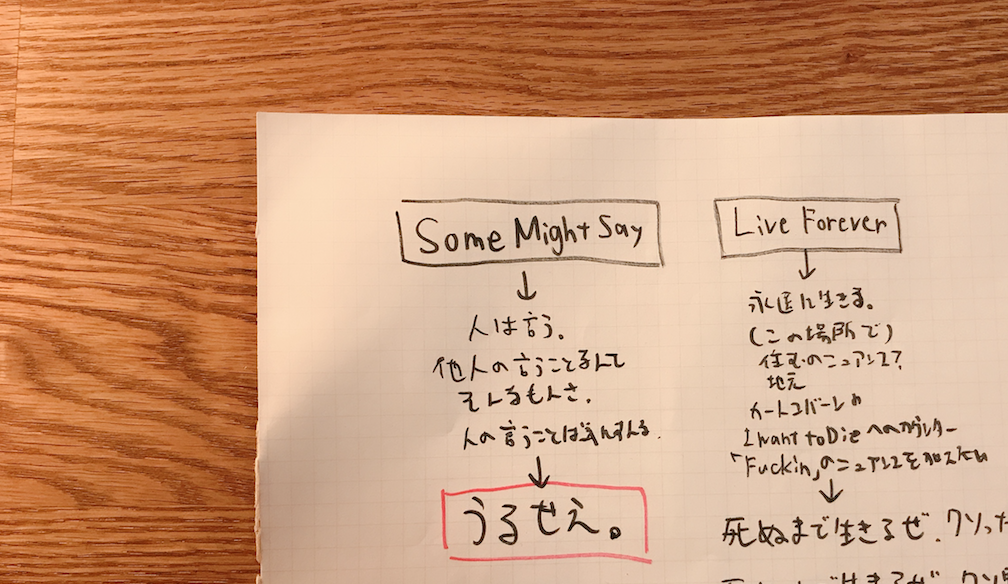 Some Might Say
人は言う。
他人の言うことなんて
そんなもんさ。
人の言うことは気にすんな。
うるせえ。
Live Forever
永遠に生きる。
(この場所で)
住むのニュアンス?
地元
カートコバーンの
I want to Dieへのカウンター
「Fuckin」のニュアンスを加えたい
死ぬまで生きるぜ、クソった